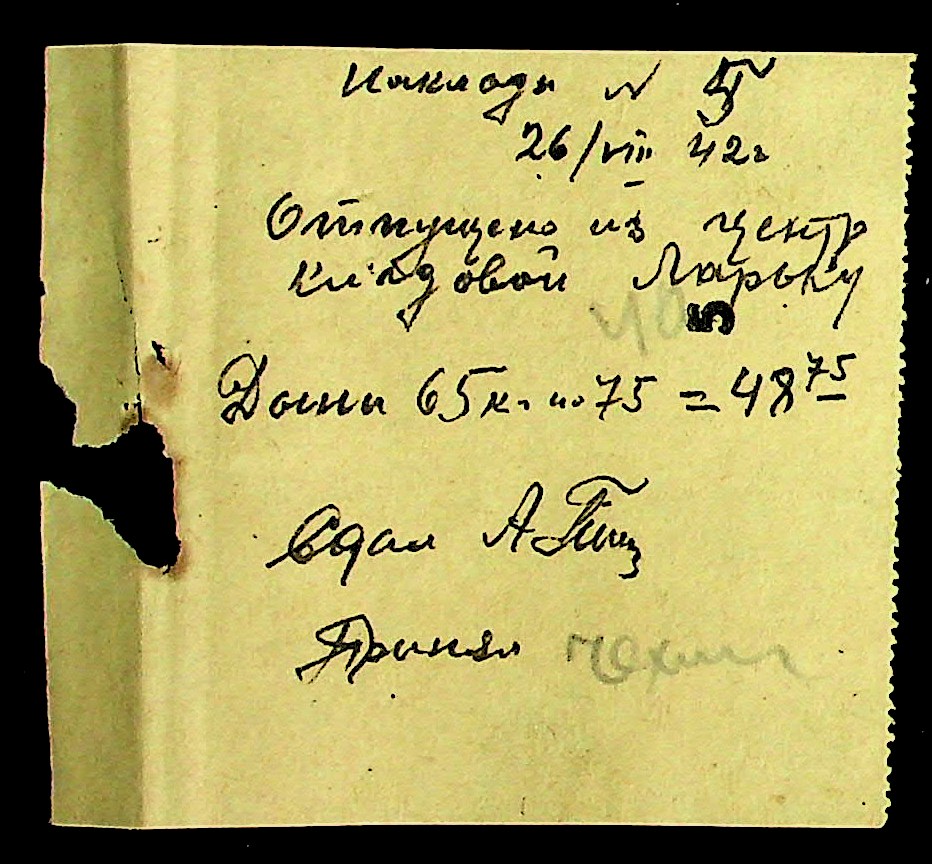 Накладн N 5
26/VIII 42г
Отпущено из центр
кладовой Ларьку
5
Дыни 65 кг по 75 = 48 75
Сдал А
Принял